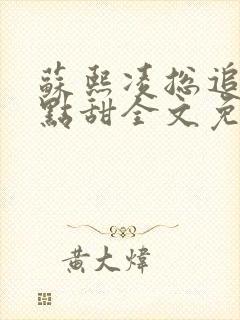 蘇熙凌總追
點甜全文免
黃大煒